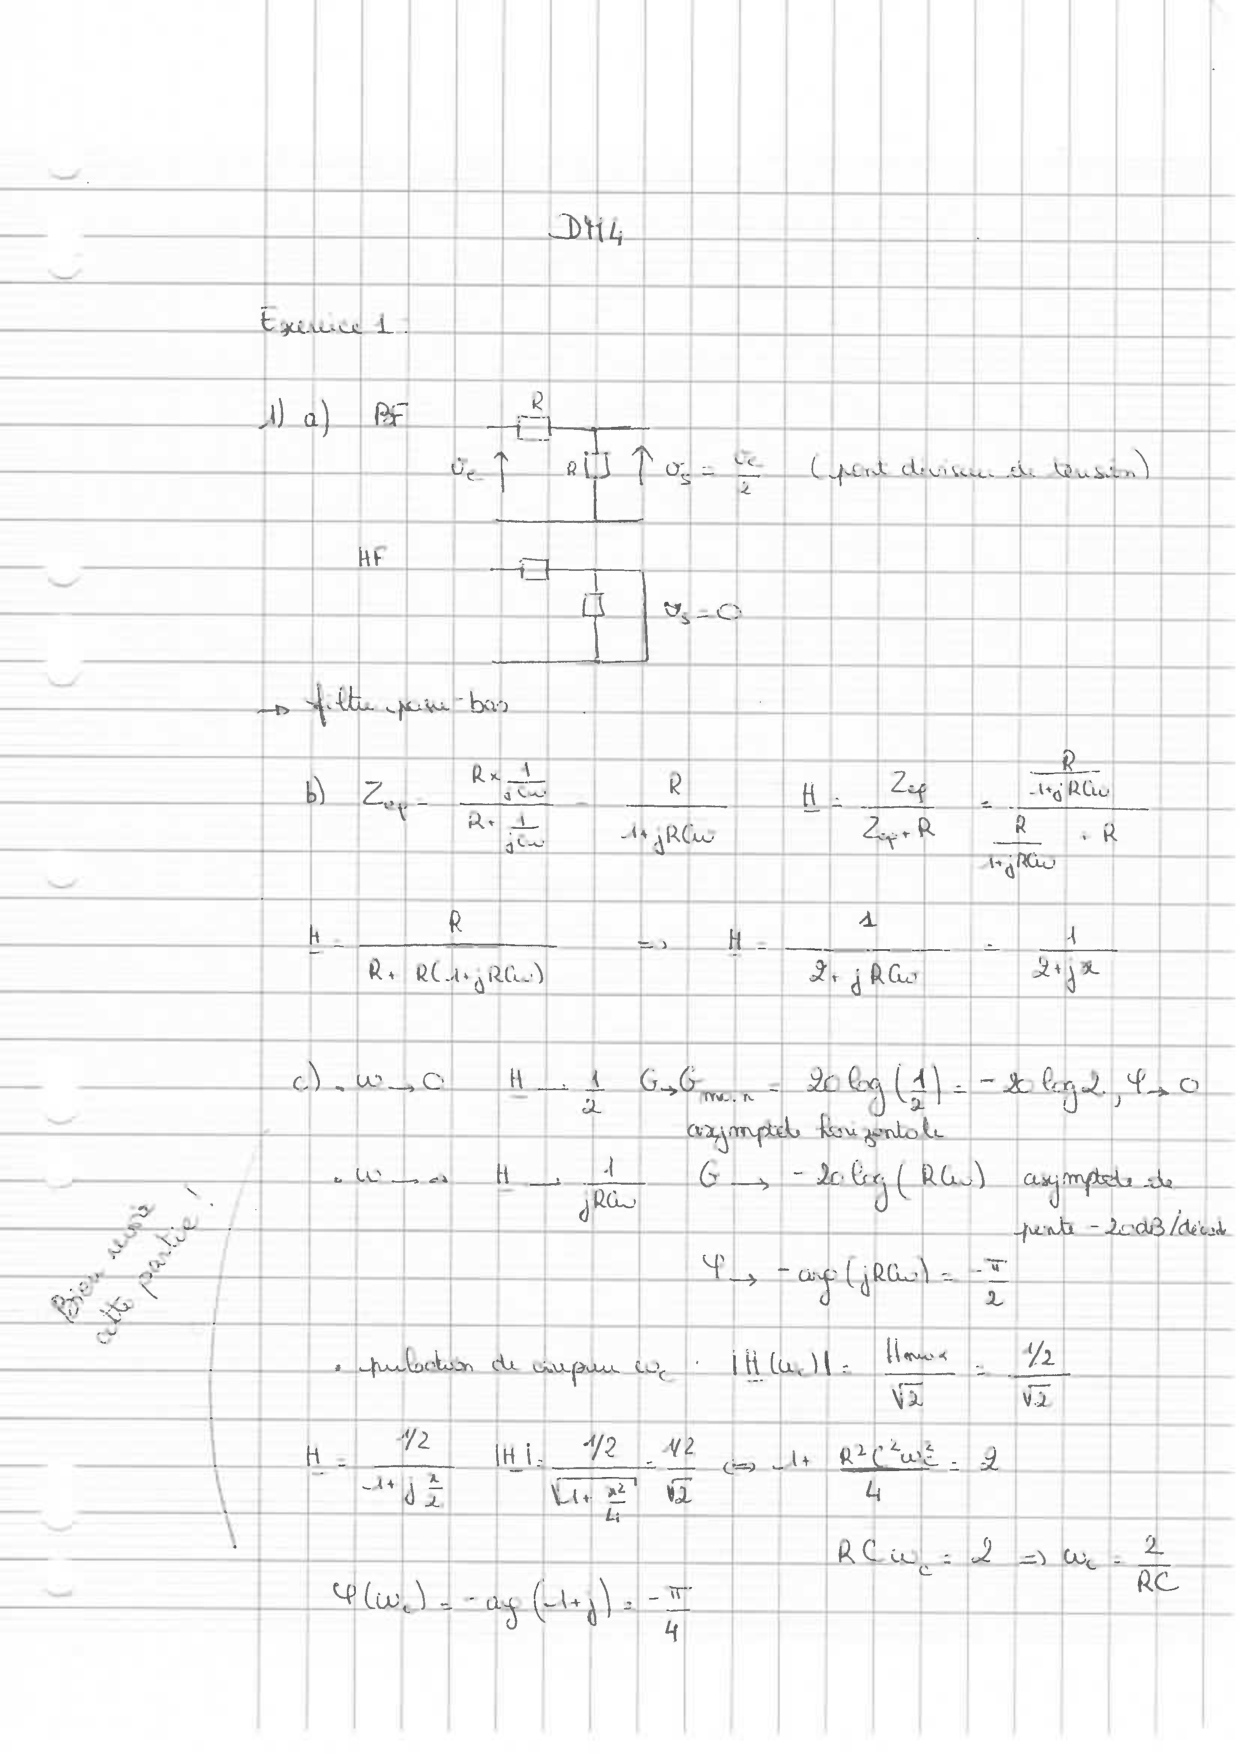 DM4
Exercice 1:
1) a) BF
R
v_e R v_s = v_e/2 (pont diviseur de tension)
HF
v_s = 0
→ filtre passe-bas
b) Z_ep = (R × 1/(jCω)) / (R + 1/(jCω)) = R/(1+jRCω) H = Z_ep/(Z_ep + R) = (R/(1+jRCω)) / (R/(1+jRCω) + R)
H = R/(R + R(1+jRCω)) => H = 1/(2 + jRCω) = 1/(2+jx)
c) . ω → 0 H → 1/2 G → G_max = 20 log(1/2) = -20 log 2, φ → 0
asymptote horizontale
. ω → ∞ H → 1/(jRCω) G → -20 log(RCω) asymptote de
pente -20dB/décade
Bien revoir
cette partie !
φ → -arg(jRCω) = -π/2
. pulsation de coupure ω_c : |H(ω_c)| = Hmax/√2 = (1/2)/√2
H = (1/2)/(1 + j x/2) |H| = (1/2)/√(1 + x²/4) = (1/2)/√2 <=> 1 + R²C²ω_c²/4 = 2
RCω_c = 2 => ω_c = 2/RC
φ(ω_c) = -arg(1+j) = -π/4